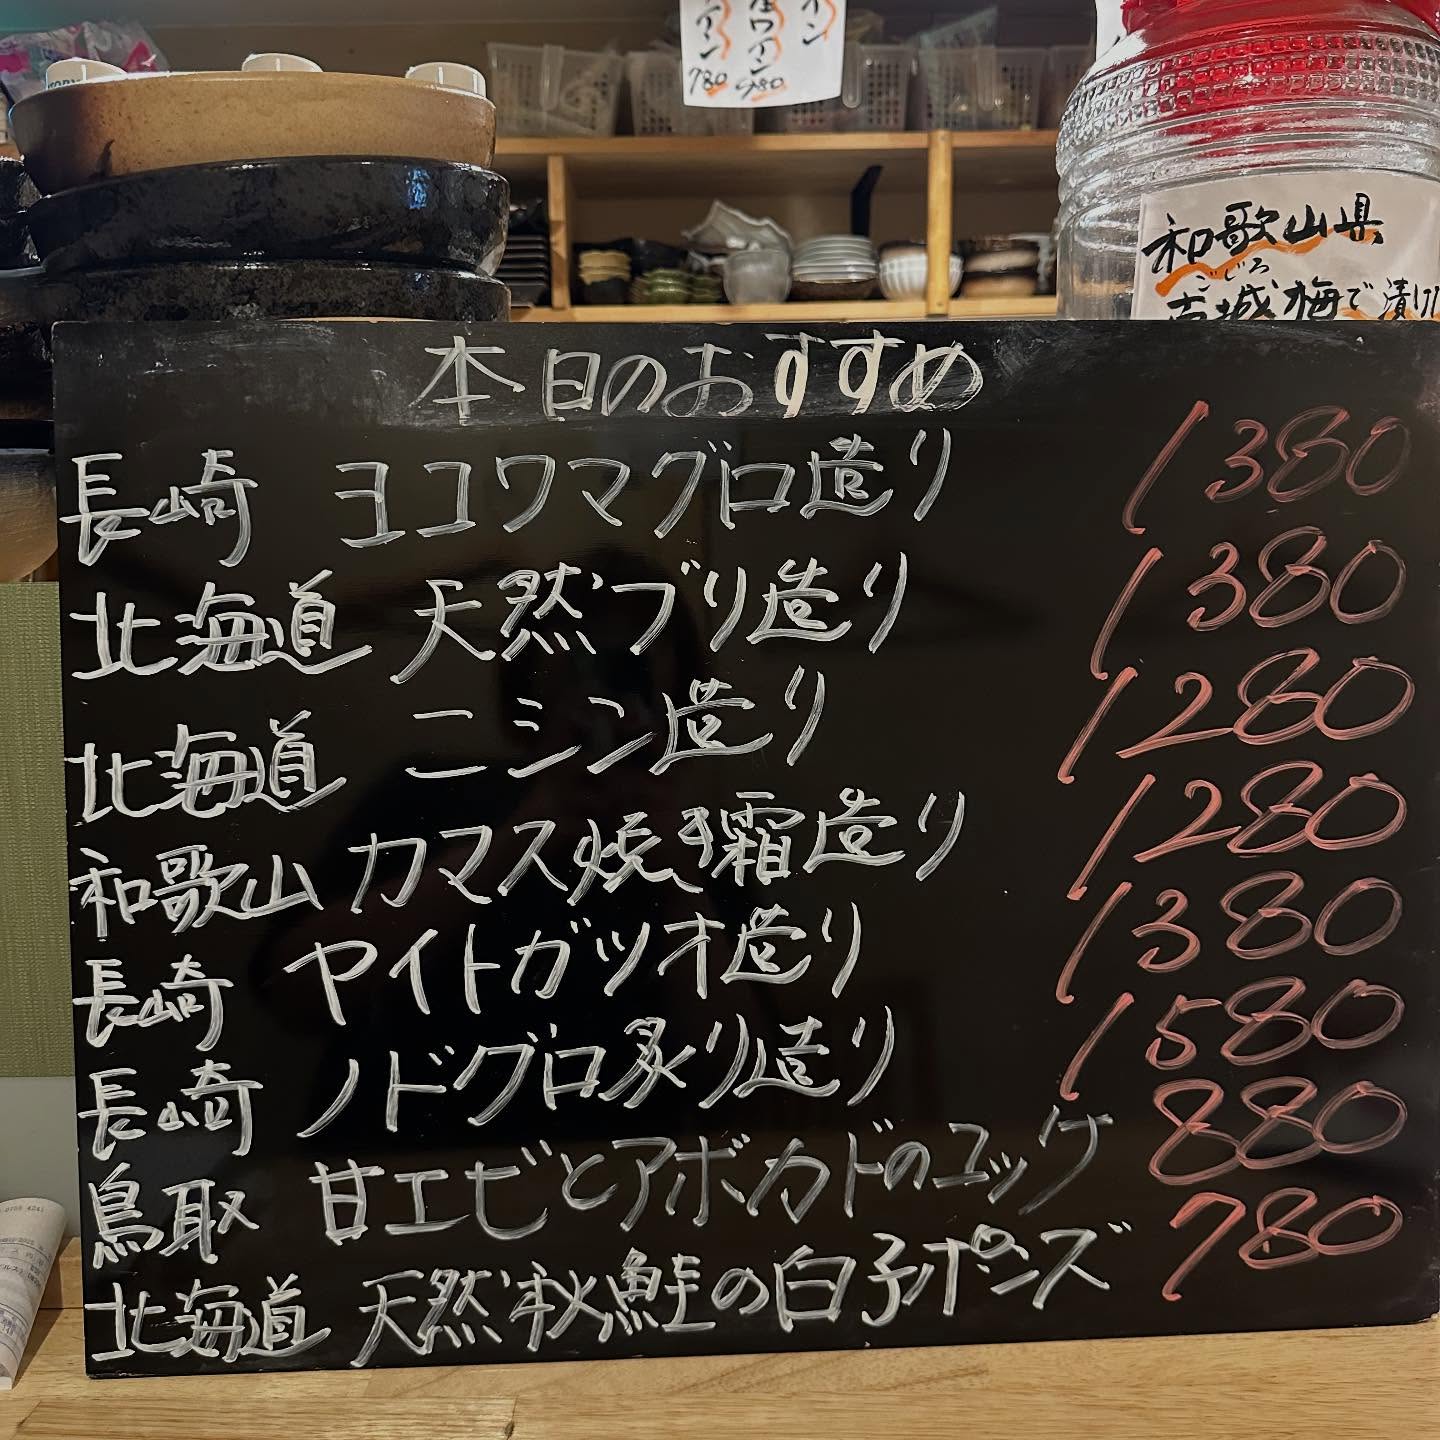 780 980
和歌山県
ごじろ
古城梅で漬け
本日のおすすめ
長崎 ヨコワマグロ造り 1380
北海道 天然ブリ造り 1380
北海道 ニシン造り 1280
和歌山 カマス焼き霜造り 1280
長崎 ヤイトガツオ造り 1380
長崎 ノドグロ炙り造り 1580
鳥取 甘エビとアボカドのユッケ 880
北海道 天然秋鮭の白子ポンズ 780